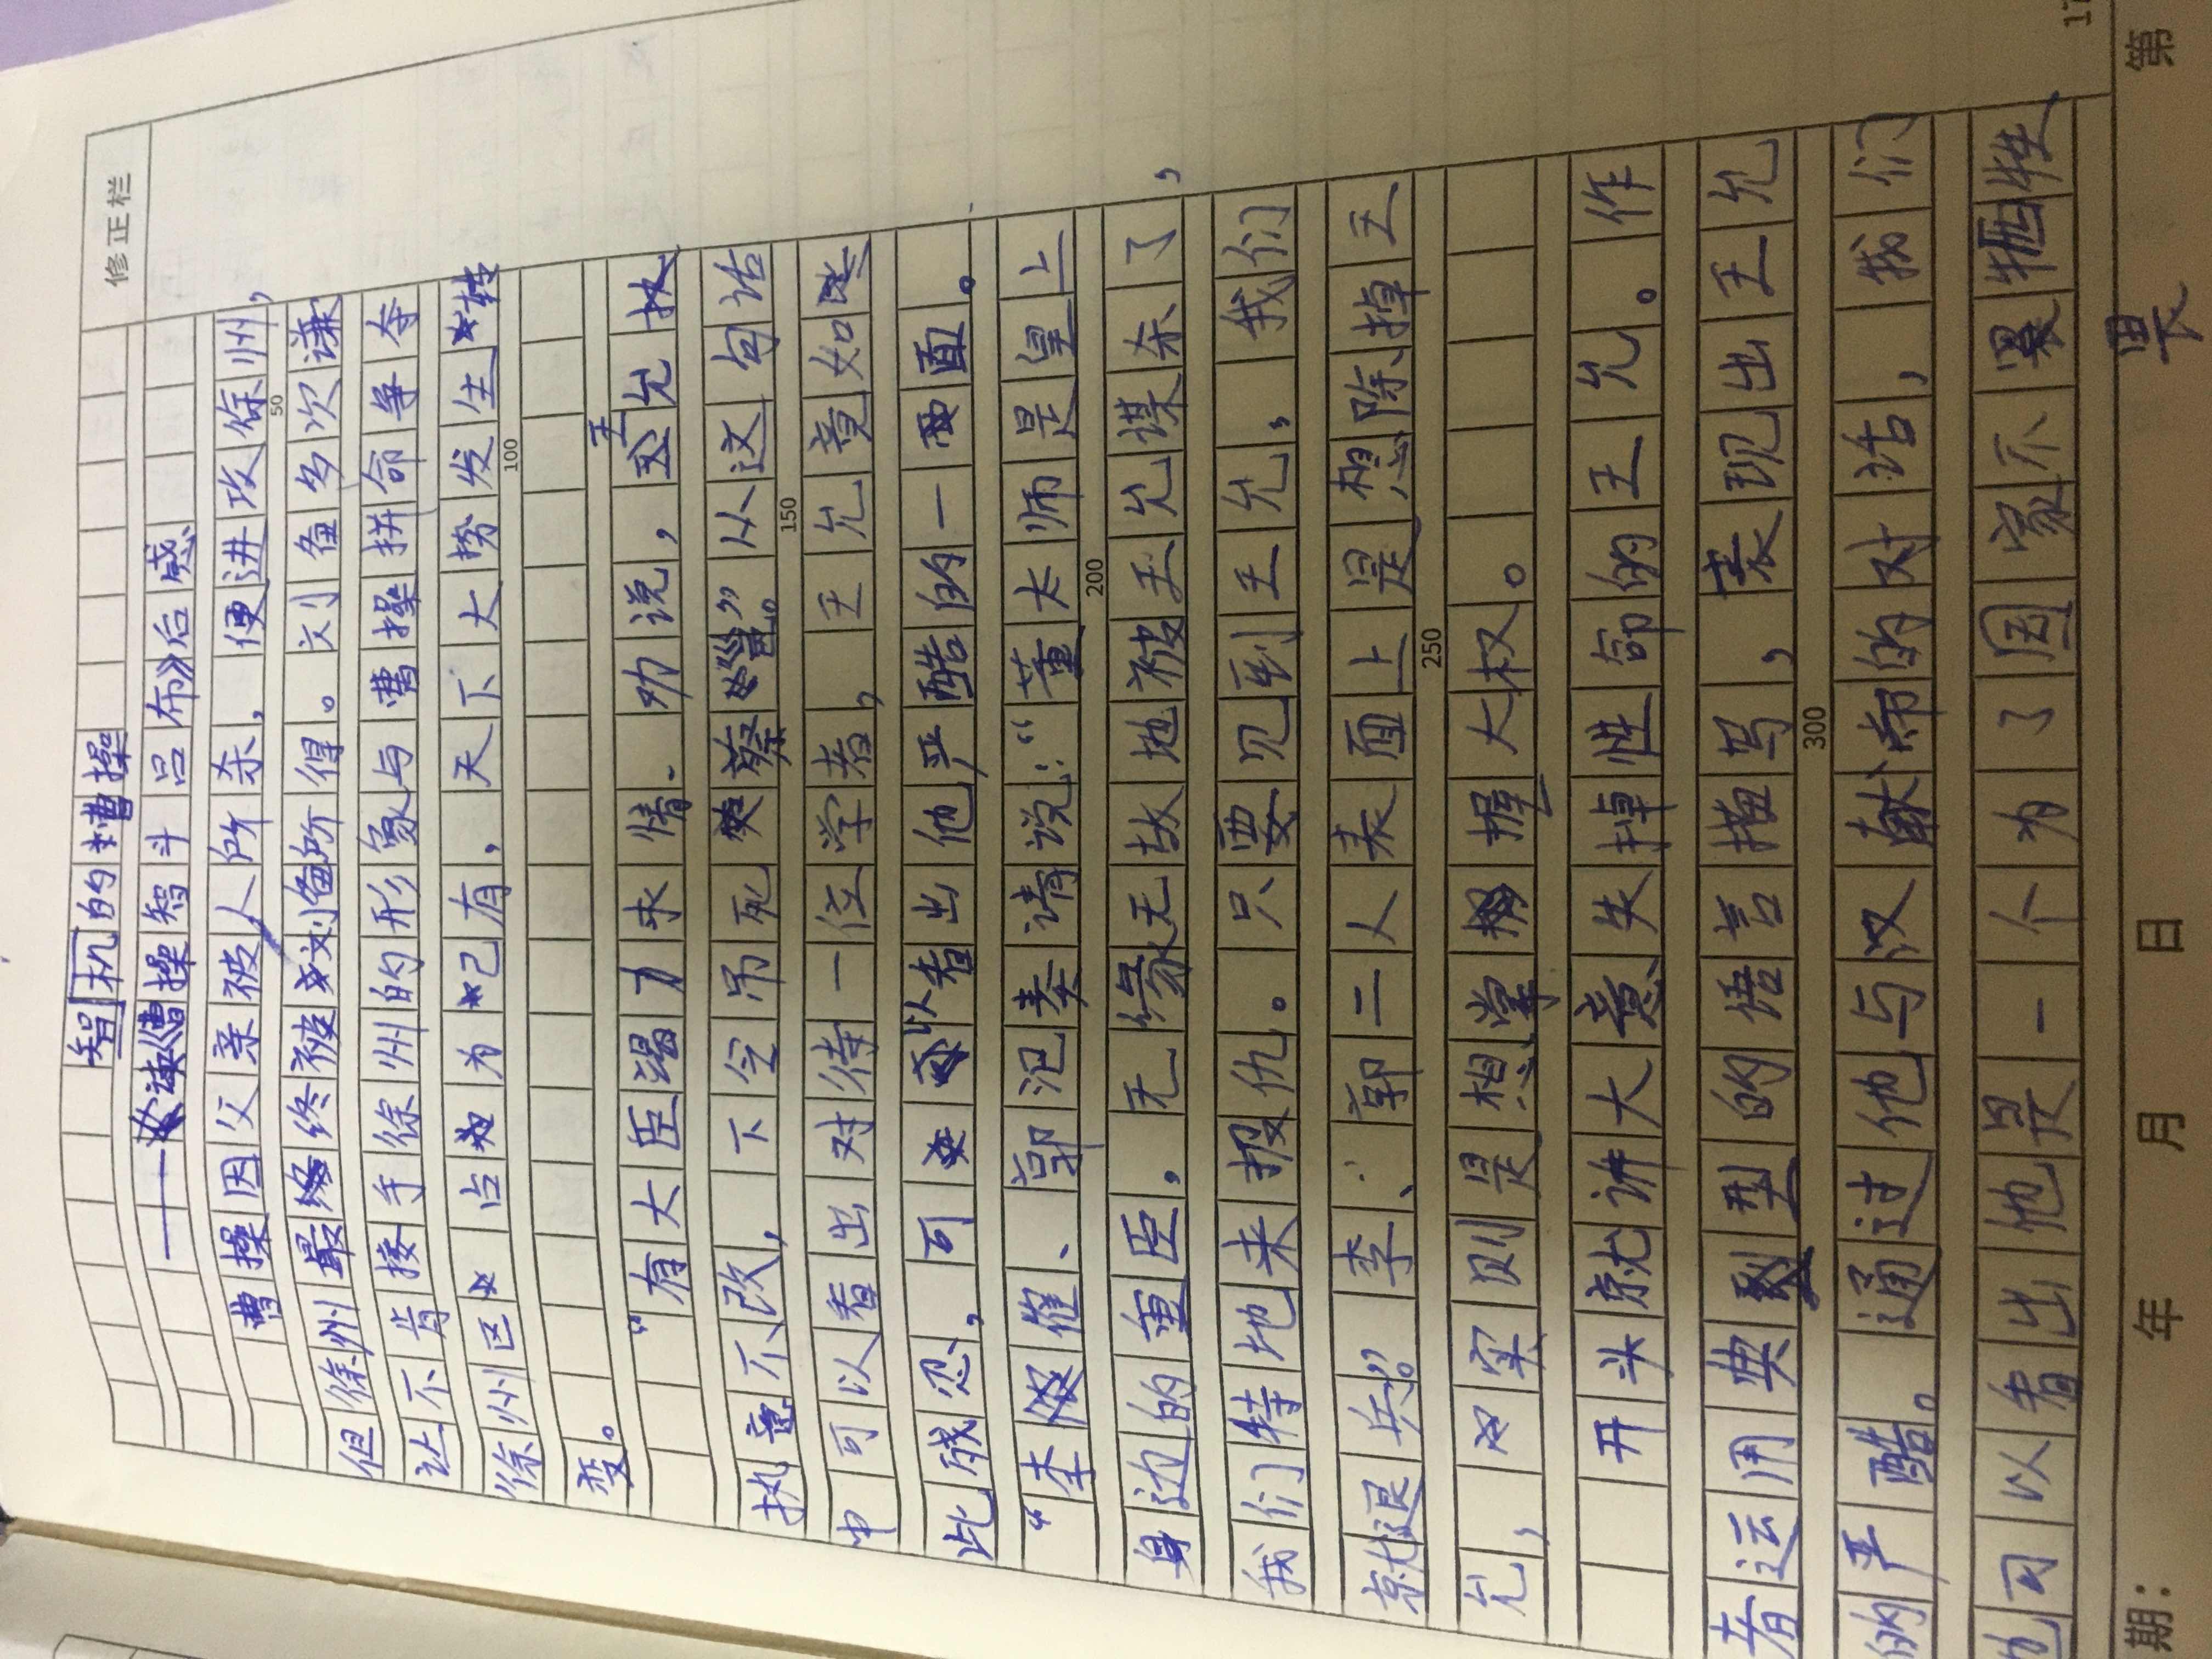 修正栏
智机的曹操
——读《曹操智斗吕布》后感
曹操因父亲被人所杀，便进攻徐州，
50
但徐州最终被刘备所得。刘备多次谦
让不肯接手徐州的形象与曹操拼命争夺
徐州区 占为己有，天下大势发生转
100
变。
“有大臣竭力求情、劝说，王允执
执意不改，下令吊死蔡邕。”从这句话
150
中可以看出对待一位学者，王允竟如
此残忍，可以看出他严酷的一面。
“李傕、郭汜奏请说：“董太师是皇上
200
身边的重臣，无缘无故地被王允谋杀了，
我们特地来报仇。只要见到王允，我们
就退兵。”李、郭二人表面上是想除掉王
250
允，实则是想掌握大权。
开头就讲大意失掉性命的王允。作
者运用典型的语言描写，表现出王允
300
的严酷。通过他与汉献帝的对话，我们
也可以看出他是一个为了国家不畏牺牲
畏
期： 年 月 日 第
17